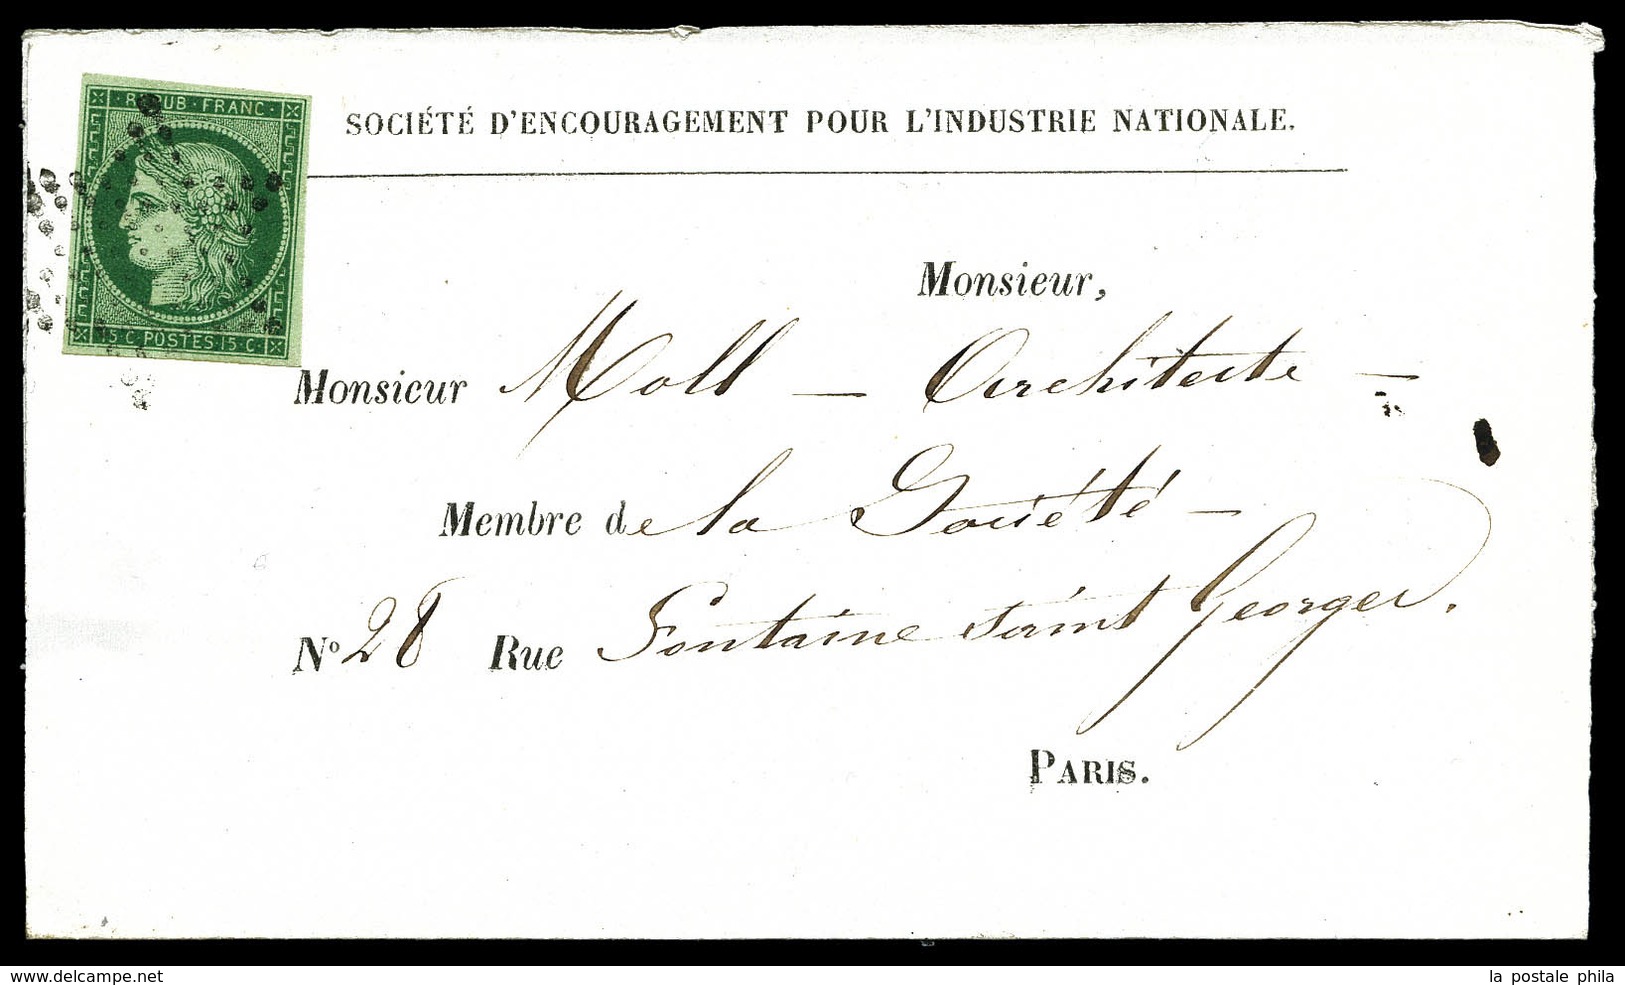 REPUB · FRANC ·
SOCIÉTÉ D'ENCOURAGEMENT POUR L'INDUSTRIE NATIONALE.
15 C · POSTES 15 · C ·
Monsieur,
Monsieur Moll — Architecte —
Membre de la Société —
N° 28 Rue Fontaine saint Georges.
PARIS.
www.delcampe.net
la postale phila